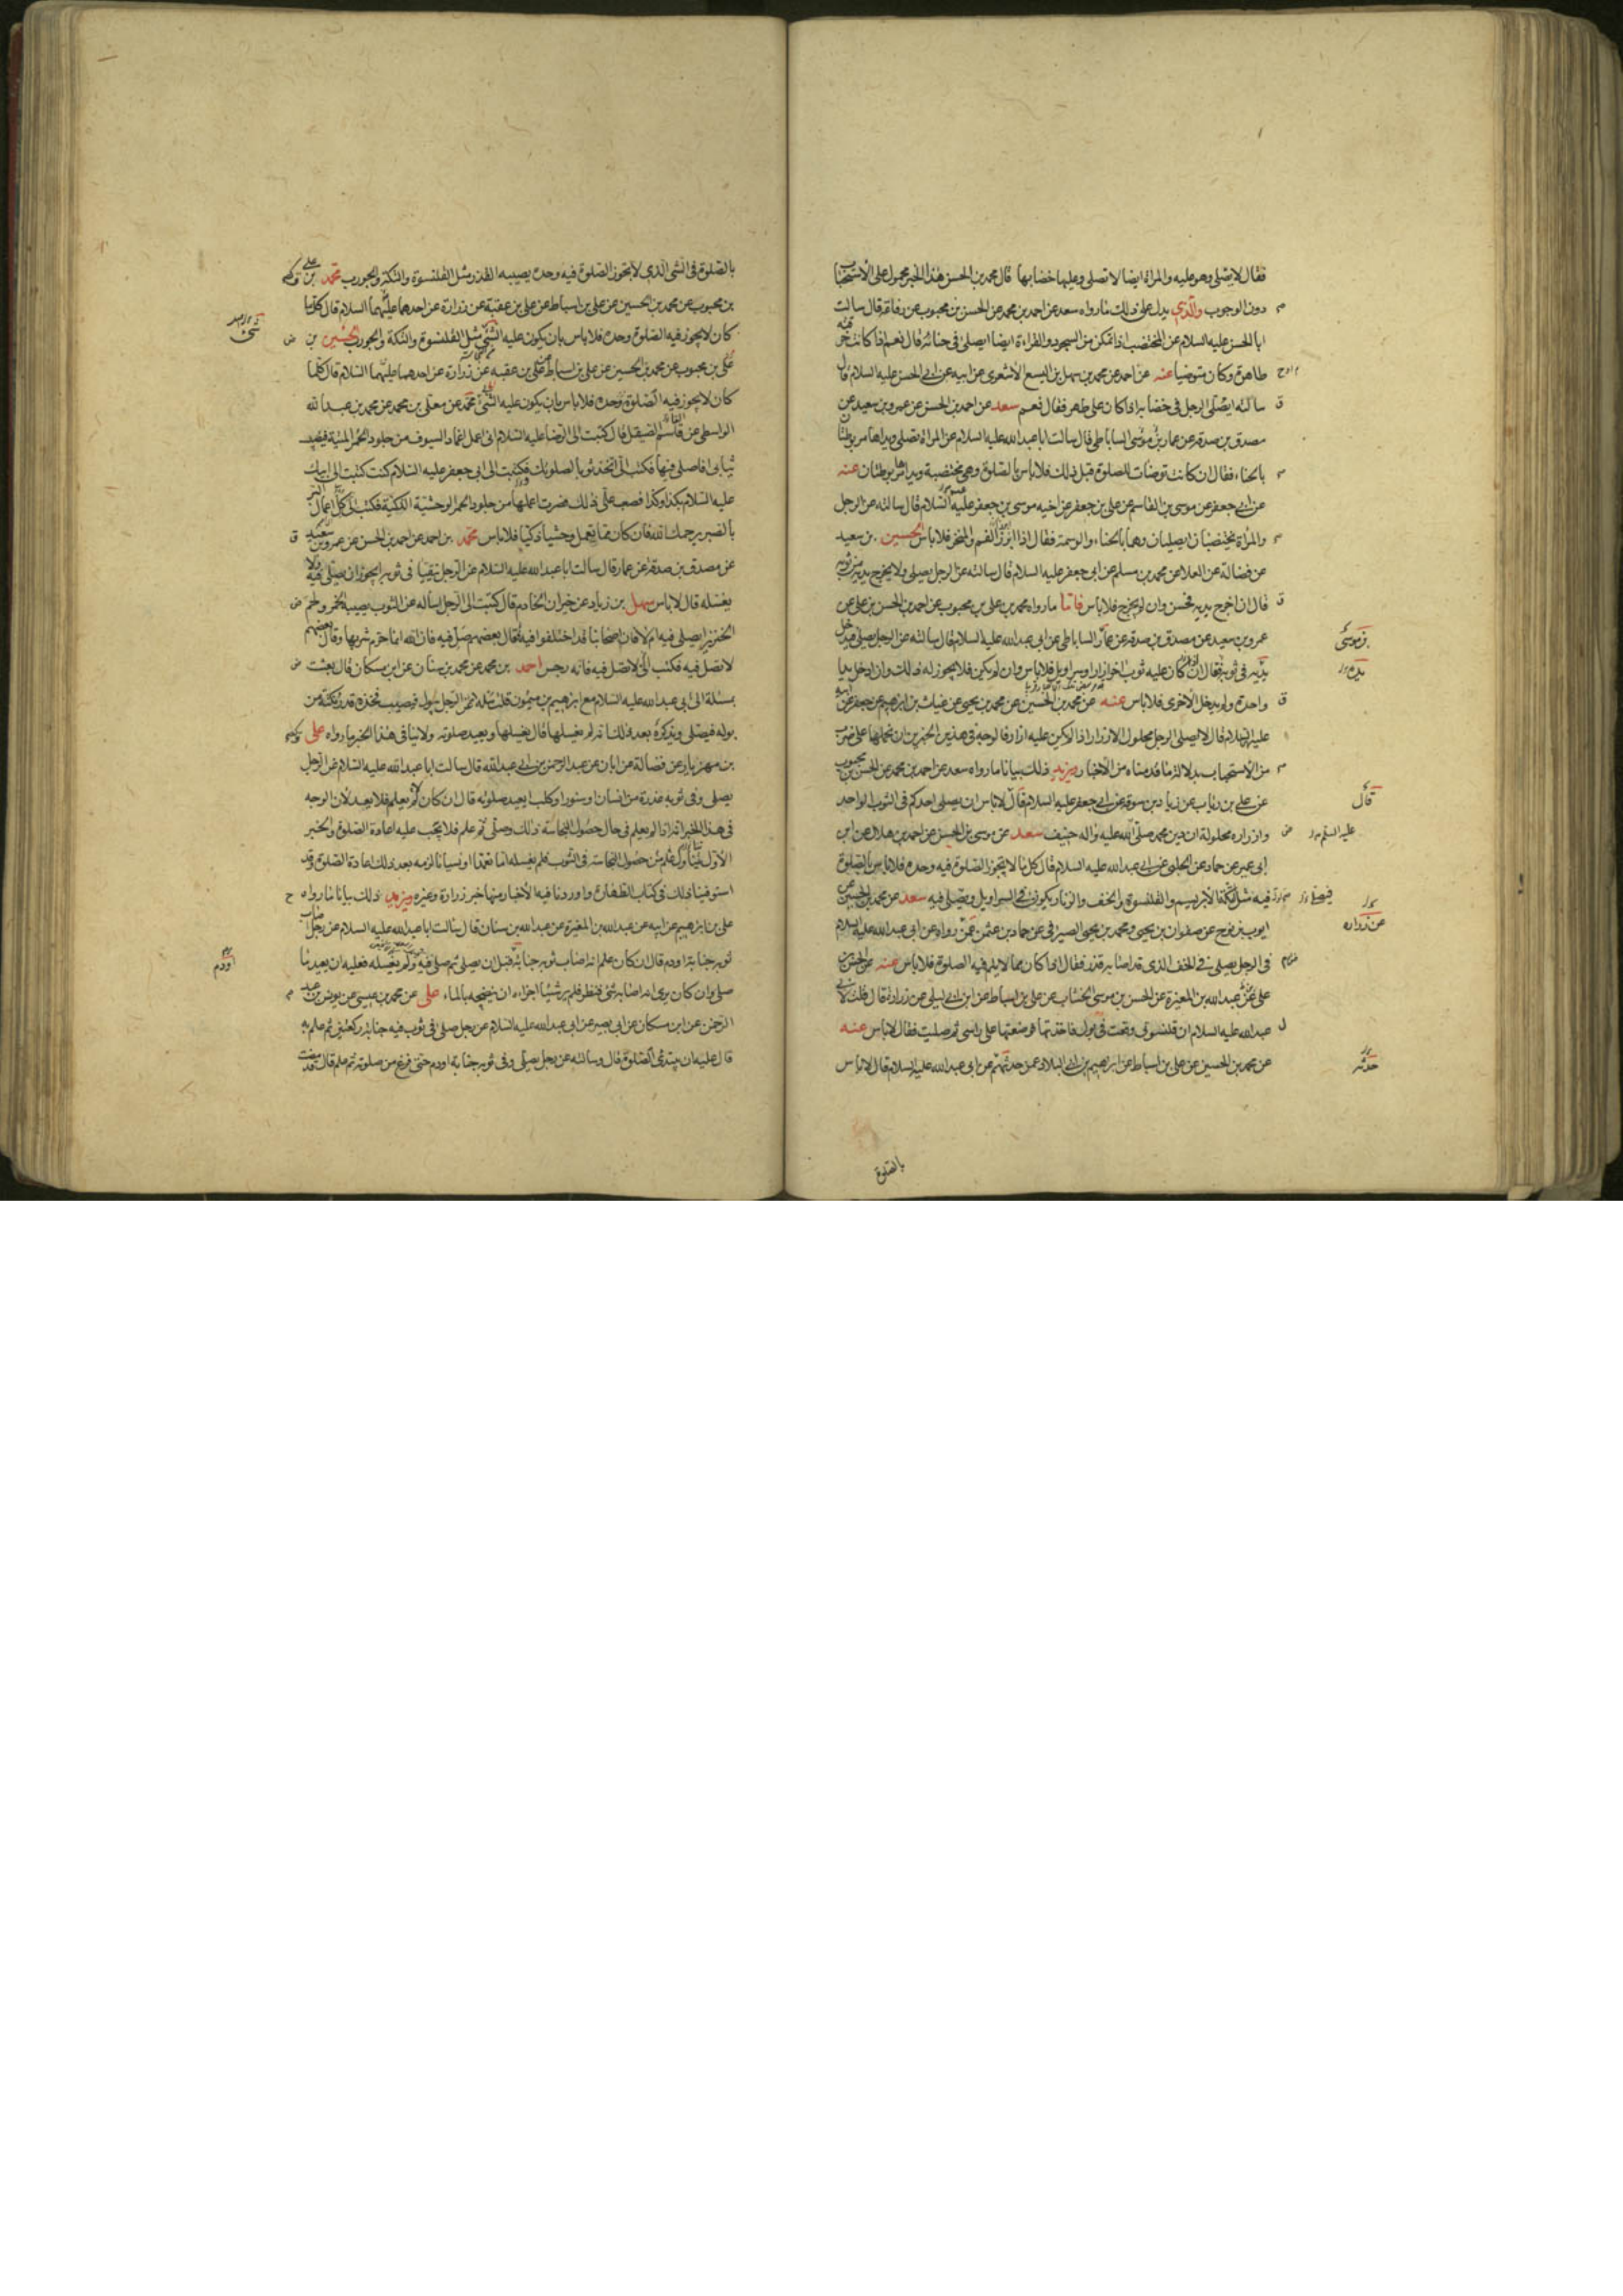 فقال لا يصلى وهو عليه والمراة ايضا لا تصلى وعليها خضابها قال محمد بن الحسن هذا الخبر محمول على الاستحباب
دون الوجوب والذي يدل على ذلك ما رواه سعد عن احمد بن محمد عن الحسن بن محبوب عن رفاعة قال سالت
ابا الحسن عليه السلام عن المختضب اذا تمكن من السجود والقراءة ايضا ايصلى فى حنائه قال نعم اذا كانت خرقته
طاهرة وكان متوضيا عنه عن احمد عن محمد بن سهل بن اليسع الاشعرى عن ابيه عن ابى الحسن عليه السلام قال
سالته ايصلى الرجل فى خضابه اذا كان على طهر فقال نعم سعد عن احمد بن الحسن عن عمرو بن سعيد عن
مصدق بن صدقة عن عمار بن موسى الساباطى قال سالت ابا عبد الله عليه السلام عن المراة تصلى ويداها مربوطتان
بالحناء فقال ان كانت توضات للصلوة قبل ذلك فلا باس بالصلوة وهى مختضبة ويداها مربوطتان عنه
عن ابى جعفر عن موسى بن القاسم عن على بن جعفر عن اخيه موسى بن جعفر عليه السلام قال سالته عن الرجل
والمراة يختضبان ايصليان وهما بالحناء والوسمة فقال اذا ابرز الفم والمنخر فلا باس الحسين بن سعيد
عن فضالة عن العلا عن محمد بن مسلم عن ابى جعفر عليه السلام قال سالته عن الرجل يصلى ولا يخرج يديه من ثوبه
قال ان اخرج يديه فحسن وان لم يخرج فلا باس فاما ما رواه محمد بن على بن محبوب عن احمد بن الحسن بن على عن
عمرو بن سعيد عن مصدق بن صدقة عن عمار الساباطى عن ابى عبد الله عليه السلام قال سالته عن الرجل يصلى فيدخل
يديه فى ثوبه فقال ان كان عليه ثوب اخر ازار او سراويل فلا باس وان لم يكن فلا يجوز له ذلك وان ادخل يدا
واحدة ولم يدخل الاخرى فلا باس عنه عن محمد بن الحسين عن محمد بن يحيى عن غياث بن ابرهيم عن جعفر عن ابيه
عليه السلام قال لا يصلى الرجل محلول الازرار اذا لم يكن عليه ازار فالوجه فى هذين الخبرين ان نحملها على ضرب
من الاستحباب بدلالة ما قدمناه من الاخبار ويزيد ذلك بيانا ما رواه سعد عن احمد بن محمد عن الحسن بن محبوب
عن على بن رئاب عن زياد بن سوقة عن ابى جعفر عليه السلام قال لا باس ان يصلى احدكم فى الثوب الواحد
وازراره محلولة ان دين محمد صلى الله عليه واله حنيف سعد عن موسى بن الحسن عن احمد بن هلال عن ابن
ابى عمير عن حماد عن الحلبى عن ابى عبد الله عليه السلام قال كل ما لا تجوز الصلوة فيه وحده فلا باس بالصلوة
فيه مثل التكة الابريسم والقلنسوة والخف والزنار يكون فى السراويل ويصلى فيه سعد عن محمد بن الحسين عن
ايوب بن نوح عن صفوان بن يحيى ومحمد بن يحيى الصيرفى عن حماد بن عثمن عمن رواه عن ابى عبد الله عليه السلام
فى الرجل يصلى فى الخف الذى قد اصابه قذر فقال اذا كان مما لا يتم فيه الصلوة فلا باس عنه عن الحسن بن
على عن عبد الله بن المغيرة عن الحسن بن موسى الخشاب عن على بن اسباط عن ابن ابى ليلى عن زرارة قال قلت لابى
عبد الله عليه السلام ان قلنسوتى وقعت فى بول فاخذتها فوضعتها على راسى ثم صليت فقال لا باس عنه
عن محمد بن الحسين عن على بن اسباط عن ابرهيم بن ابى البلاد عمن حدثهم عن ابى عبد الله عليه السلام قال لا باس
بالصلوة
بن موسى
يديه
قال
عليه السلم
عن زرارة
حدثه
بالصلوة فى الشى الذي لا تجوز الصلوة فيه وحده يصيبه القذر مثل القلنسوة والتكة والجورب محمد بن على
بن محبوب عن محمد بن الحسين عن على بن اسباط عن على بن عقبة عن زرارة عن احدهما عليهما السلام قال كل ما
كان لا يجوز فيه الصلوة وحده فلا باس بان يكون عليه الشئ مثل القلنسوة والتكة والجورب الحسين بن
على بن محبوب عن محمد بن الحسين عن على بن اسباط عن على بن عقبة عن زرارة عن احدهما عليهما السلام قال كلما
كان لا يجوز فيه الصلوة وحده فلا باس بان يكون عليه الشئ محمد عن معلى بن محمد عن محمد بن عبد الله
الواسطى عن قاسم الصيقل قال كتبت الى الرضا عليه السلام انى اعمل اغماد السيوف من جلود الحمر الميتة فيصيب
ثيابى افاصلى فيها فكتب الى اتخذ ثوبا لصلوتك فكتبت الى ابى جعفر عليه السلام كنت كتبت الى ابيك
عليه السلام بكذا وكذا فصعب على ذلك فصرت اعملها من جلود الحمر الوحشية الذكية فكتب الى كل اعمال البر
بالصبر يرحمك الله فان كان مما تعمل وحشيا ذكيا فلا باس محمد بن احمد عن احمد بن الحسن عن عمرو بن سعيد
عن مصدق بن صدقة عن عمار قال سالت ابا عبد الله عليه السلام عن الرجل يتقيا فى ثوبه ايجوز ان يصلى فيه ولا
يغسله قال لا باس سهل بن زياد عن خيران الخادم قال كتبت الى الرجل اساله عن الثوب يصيبه الخمر ولحم
الخنزير ايصلى فيه ام لا فان اصحابنا قد اختلفوا فيه فقال بعضهم صل فيه فان الله انما حرم شربها وقال بعضهم
لا تصل فيه فكتب الى لا تصل فيه فانه رجس احمد بن محمد عن محمد بن سنان عن ابن مسكان قال بعثت
بمسئلة الى ابى عبد الله عليه السلام مع ابرهيم بن ميمون قلت سله عن الرجل يبول فيصيب فخذه قدر نكتة من
بوله فيصلى ويذكره بعد ذلك انه لم يغسلها قال يغسلها ويعيد صلوته ولا ينافى هذا الخبر ما رواه على
بن مهزيار عن فضالة عن ابان عن عبد الرحمن بن ابى عبد الله قال سالت ابا عبد الله عليه السلام عن الرجل
يصلى وفى ثوبه عذرة من انسان او سنور او كلب ايعيد صلوته قال ان كان لم يعلم فلا يعد لان الوجه
فى هذا الخبر انه اذا لم يعلم فى حال حصول النجاسة ذلك وصلى ثم علم فلا يجب عليه اعادة الصلوة والخبر
الاول فيمن علم حصول النجاسة فى الثوب فلم يغسله اما تعمدا او نسيانا لزمه بعد ذلك اعادة الصلوة وقد
استوفينا ذلك فى كتاب الطهارة واوردنا فيه الاخبار منها خبر زرارة وغيره ويزيد ذلك بيانا ما رواه
على بن ابرهيم عن ابيه عن عبد الله بن المغيرة عن عبد الله بن سنان قال سالت ابا عبد الله عليه السلام عن رجل اصاب
ثوبه جنابة او دم قال ان كان علم انه اصاب ثوبه جنابة قبل ان يصلى ثم صلى فيه ولم يغسله فعليه ان يعيد ما
صلى وان كان يرى انه اصابه شئ فنظر فلم ير شيئا اجزاه ان ينضحه بالماء على عن محمد بن عيسى عن يونس بن عبد
الرحمن عن ابن مسكان عن ابى بصير عن ابى عبد الله عليه السلام عن رجل صلى فى ثوب فيه جنابة ركعتين ثم علم به
قال عليه ان يبتدئ الصلوة قال وسالته عن رجل يصلى وفى ثوبه جنابة او دم حتى فرغ من صلوته ثم علم قال قد مضت
شئ
او دم